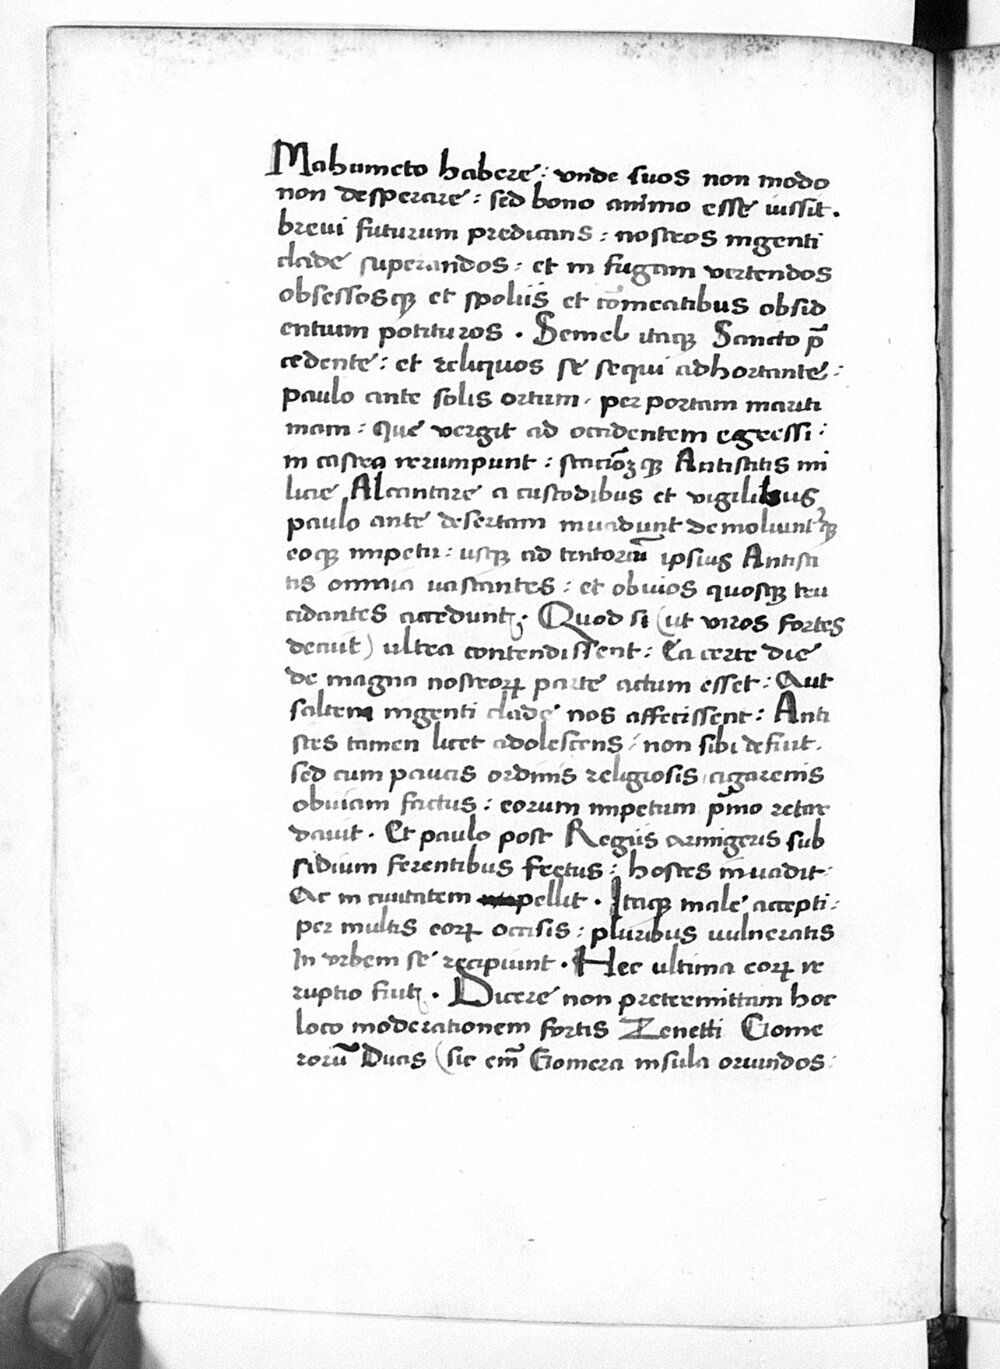 Mahumeto habere: vnde suos non modo
non desperare: sed bono animo esse iussit.
breui futurum predicans: nostros ingenti
clade superandos: et in fugam vertendos
obsessosqꝫ et spoliis et cōmeatibus obsid
entium potituros. Semel itaqꝫ Sancto p̄
cedente: et reliquos se sequi adhortante:
paulo ante solis ortum, per portam mariti
mam: que vergit ad occidentem egressi:
in castra rerumpunt: stacioꝝqꝫ Antistitis mi
licie Alcantare a custodibus et vigilibus
paulo ante desertam inuadunt demoliuntqꝫ
eoqꝫ impetu: usqꝫ ad tentoriū ipsius Antisti
tis omnia uastantes: et obuios quosqꝫ tru
cidantes accedunt. Quod si (ut viros fortes
decuit) ultra contendissent: Ea certe die
de magna nostroꝝ parte actum esset: Aut
saltem ingenti clade nos affecissent: Anti
stes tamen licet adolescens: non sibi defuit.
sed cum paucis ordinis religiosis agarenis
obuiam factus: eorum impetum p̄mo retar
dauit. Et paulo post Regiis armigeris sub
sidium ferentibus fretus: hostes inuadit:
Ac in ciuitatem pellit. Itaqꝫ male accepti:
per multis eoꝝ occisis: pluribus uulneratis
In vrbem se recipiunt. Hec ultima eoꝝ ir
ruptio fuit. Dicere non pretermittam hoc
loco moderationem fortis Zenetti Gome
rorū Ducis (sic em̄ Gomera insula oriundos: